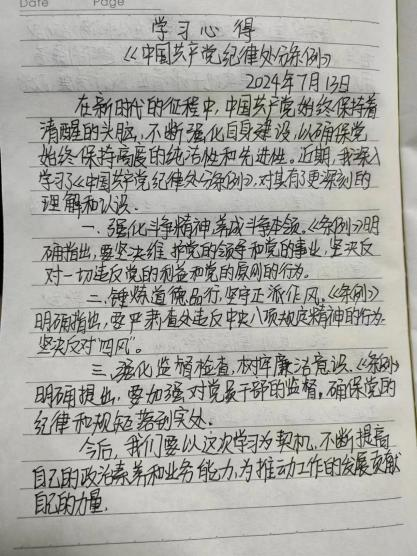 Date Page
学习心得
《中国共产党纪律处分条例》
2024年7月13日
在新时代的征程中，中国共产党始终保持着
清醒的头脑，不断强化自身建设，以确保党
始终保持高度的纯洁性和先进性。近期，我深入
学习了《中国共产党纪律处分条例》，对其有了更深刻的
理解和认识。
一、强化斗争精神，养成斗争本领。《条例》明
确指出，要坚决维护党的领导和党的事业，坚决反
对一切违反党的利益和党的原则的行为。
二、锤炼道德品行，坚守正派作风。《条例》
明确指出，要严肃查处违反中央八项规定精神的行为，
坚决反对“四风”。
三、强化监督检查，树牢廉洁意识。《条例》
明确提出，要加强对党员干部的监督，确保党的
纪律和规矩落到实处。
今后，我们要以这次学习为契机，不断提高
自己的政治素养和业务能力，为推动工作的发展贡献
自己的力量。